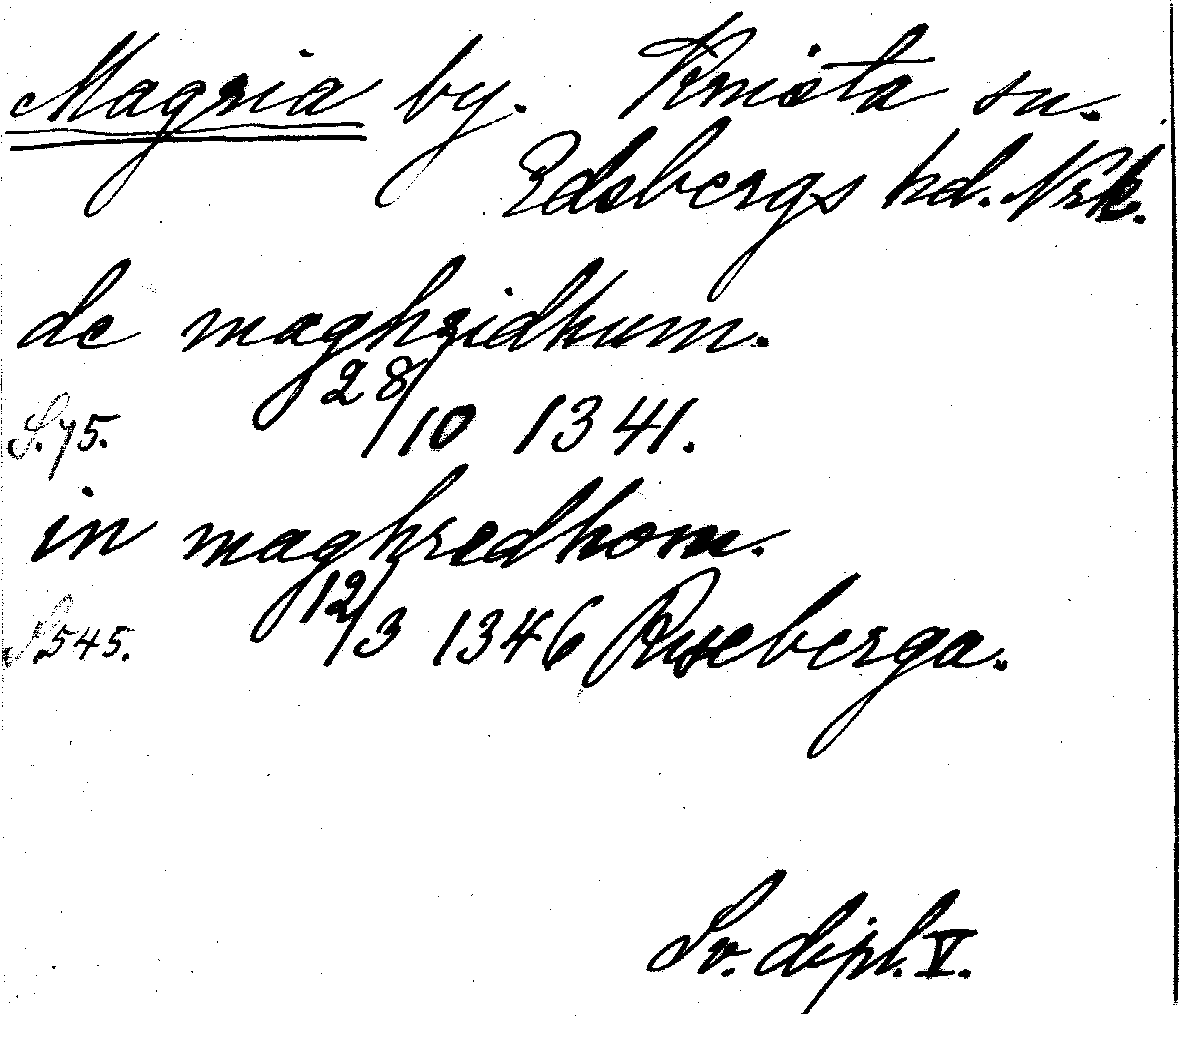 Magria by. Knista sn.
Edsbergs hd. Nrk.
de maghridhum.
S. 75. 28/10 1341.
in maghredhom.
S. 545. 12/3 1346 Riseberga.
Sv. dipl. V.